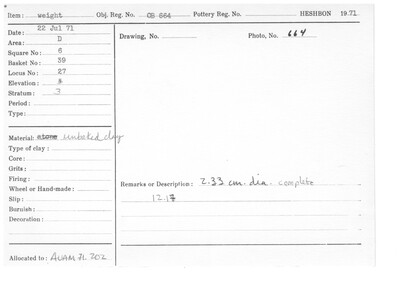 Item: weight Obj. Reg. No. OB 664 Pottery Reg. No. HESHBON 1971
Date: 22 Jul 71
Area: D
Square No: 6
Basket No: 39
Locus No: 27
Elevation:
Stratum: 3
Period:
Type:
Material: stone unbaked clay
Type of clay:
Core:
Grits:
Firing:
Wheel or Hand-made:
Slip:
Burnish:
Decoration:
Allocated to: AUAM 71.202
Drawing, No. Photo, No. 664
Remarks or Description: 2.33 cm. dia. complete